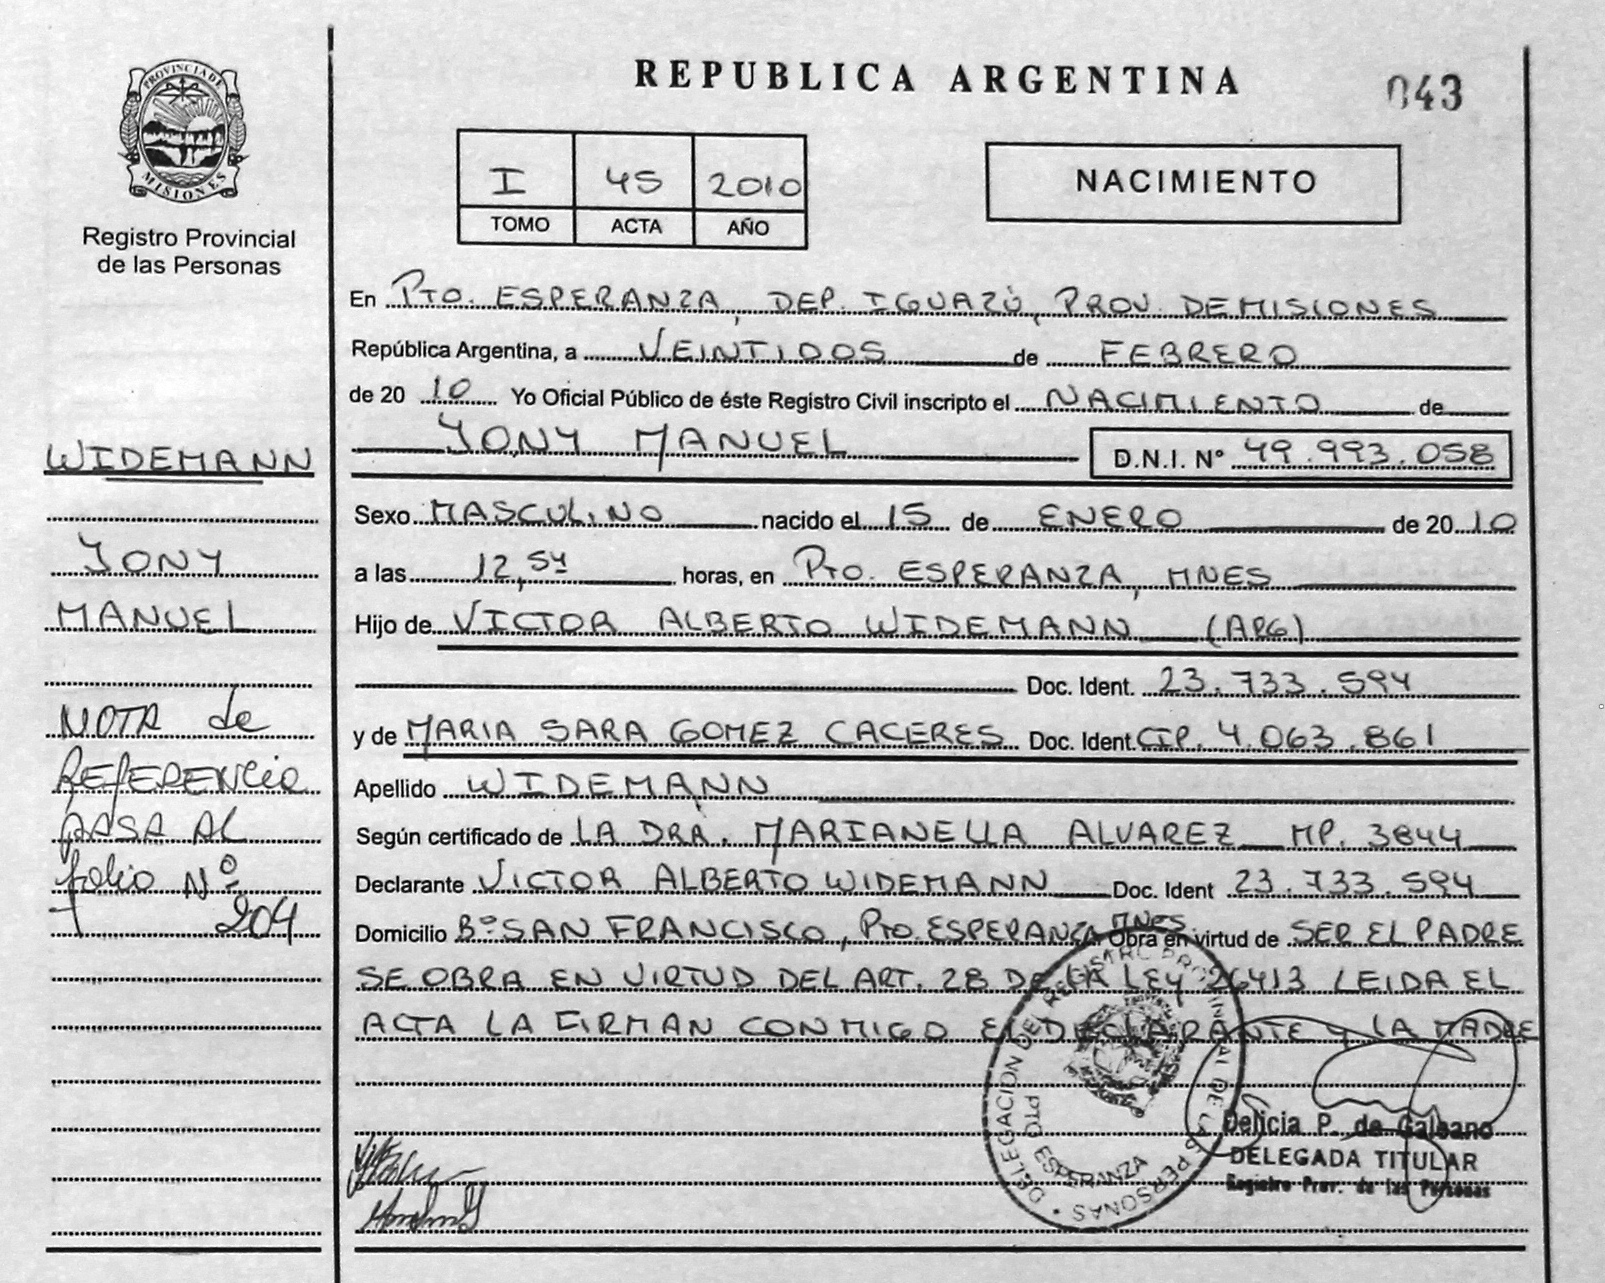 PROVINCIA DE
MISIONES
Registro Provincial
de las Personas
REPUBLICA ARGENTINA
043
I 45 2010
TOMO ACTA AÑO
NACIMIENTO
En PTO. ESPERANZA, DEP. IGUAZÚ, PROV. DE MISIONES
República Argentina, a VEINTIDOS de FEBRERO
de 20 10 Yo Oficial Público de éste Registro Civil inscripto el NACIMIENTO de
YONY MANUEL D.N.I. N° 49.993.058
Sexo MASCULINO nacido el 15 de ENERO de 20 10
a las 12,54 horas, en PTO. ESPERANZA, MNES
Hijo de VICTOR ALBERTO WIDEMANN (ARG)
Doc. Ident. 23.733.594
y de MARIA SARA GOMEZ CACERES Doc. Ident. CIP. 4.063.861
Apellido WIDEMANN
Según certificado de LA DRA. MARIANELLA ALVAREZ MP. 3844
Declarante VICTOR ALBERTO WIDEMANN Doc. Ident 23.733.594
Domicilio B° SAN FRANCISCO, PTO. ESPERANZA MNES. Obra en virtud de SER EL PADRE
SE OBRA EN VIRTUD DEL ART. 28 DE LA LEY 26413 LEIDA EL
ACTA LA FIRMAN CONMIGO EL DECLARANTE Y LA MADRE
WIDEMANN
YONY
MANUEL
NOTA de
REFERENCIA
PASA AL
folio N°
204
DELEGACION DEL REGISTRO PROVINCIAL DE LAS PERSONAS
PTO ESPERANZA
Delicia P. de Galeano
DELEGADA TITULAR
Registro Prov. de las Personas